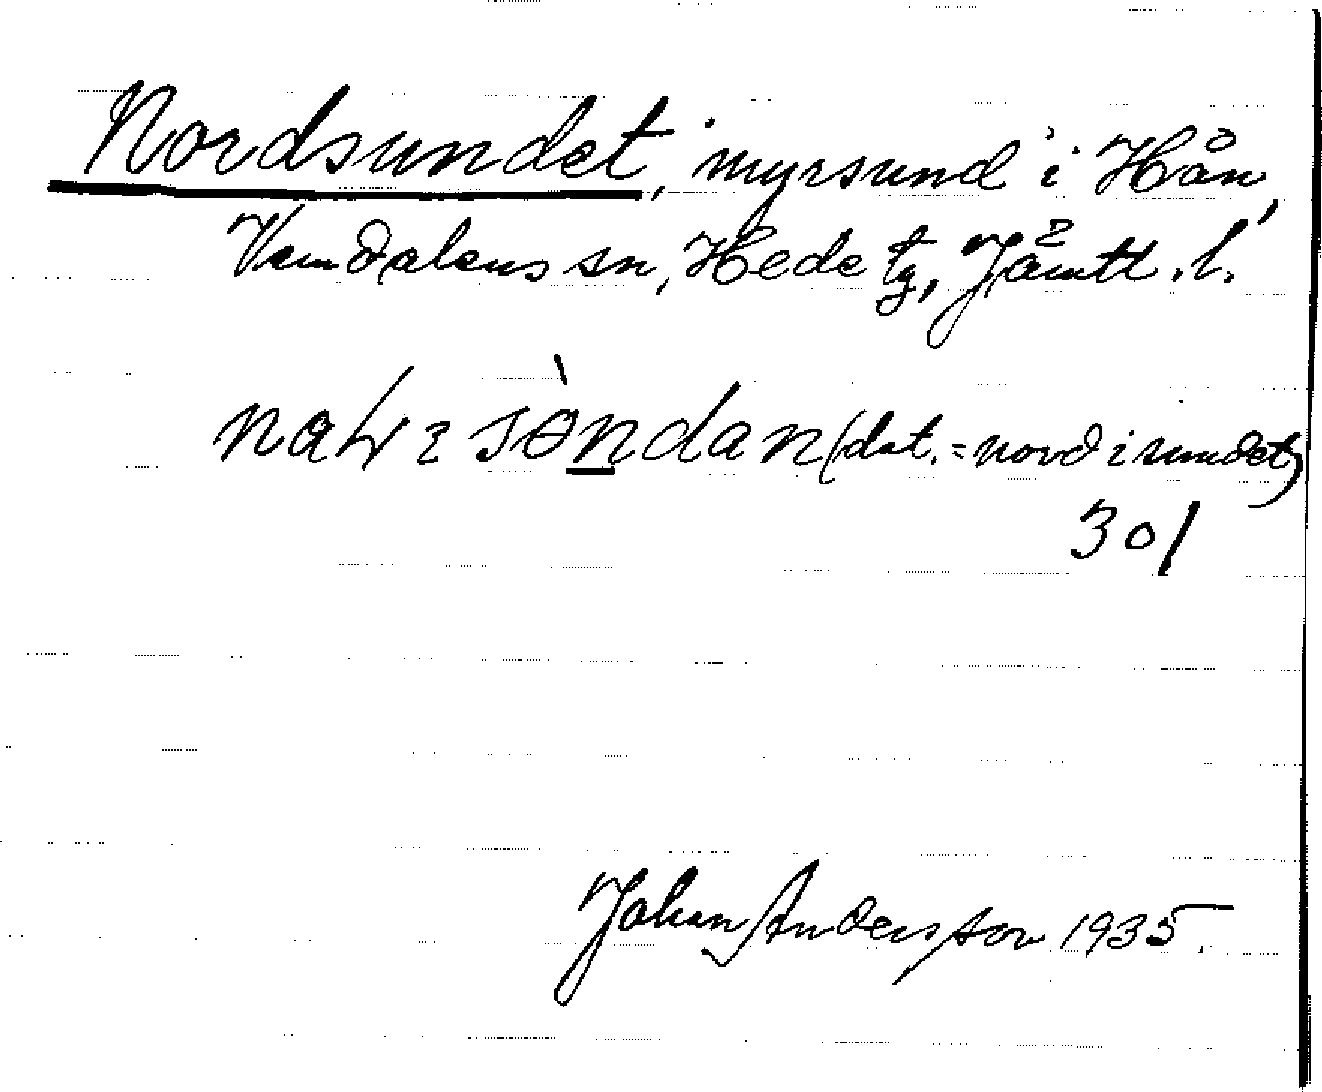 Nordsundet, myrsund i Hån,
Vemdalens sn, Hede tg, Jämtl. l.
sɵ̀ndan (dat. = nord i sundet)
301
Johan Andersson 1935.